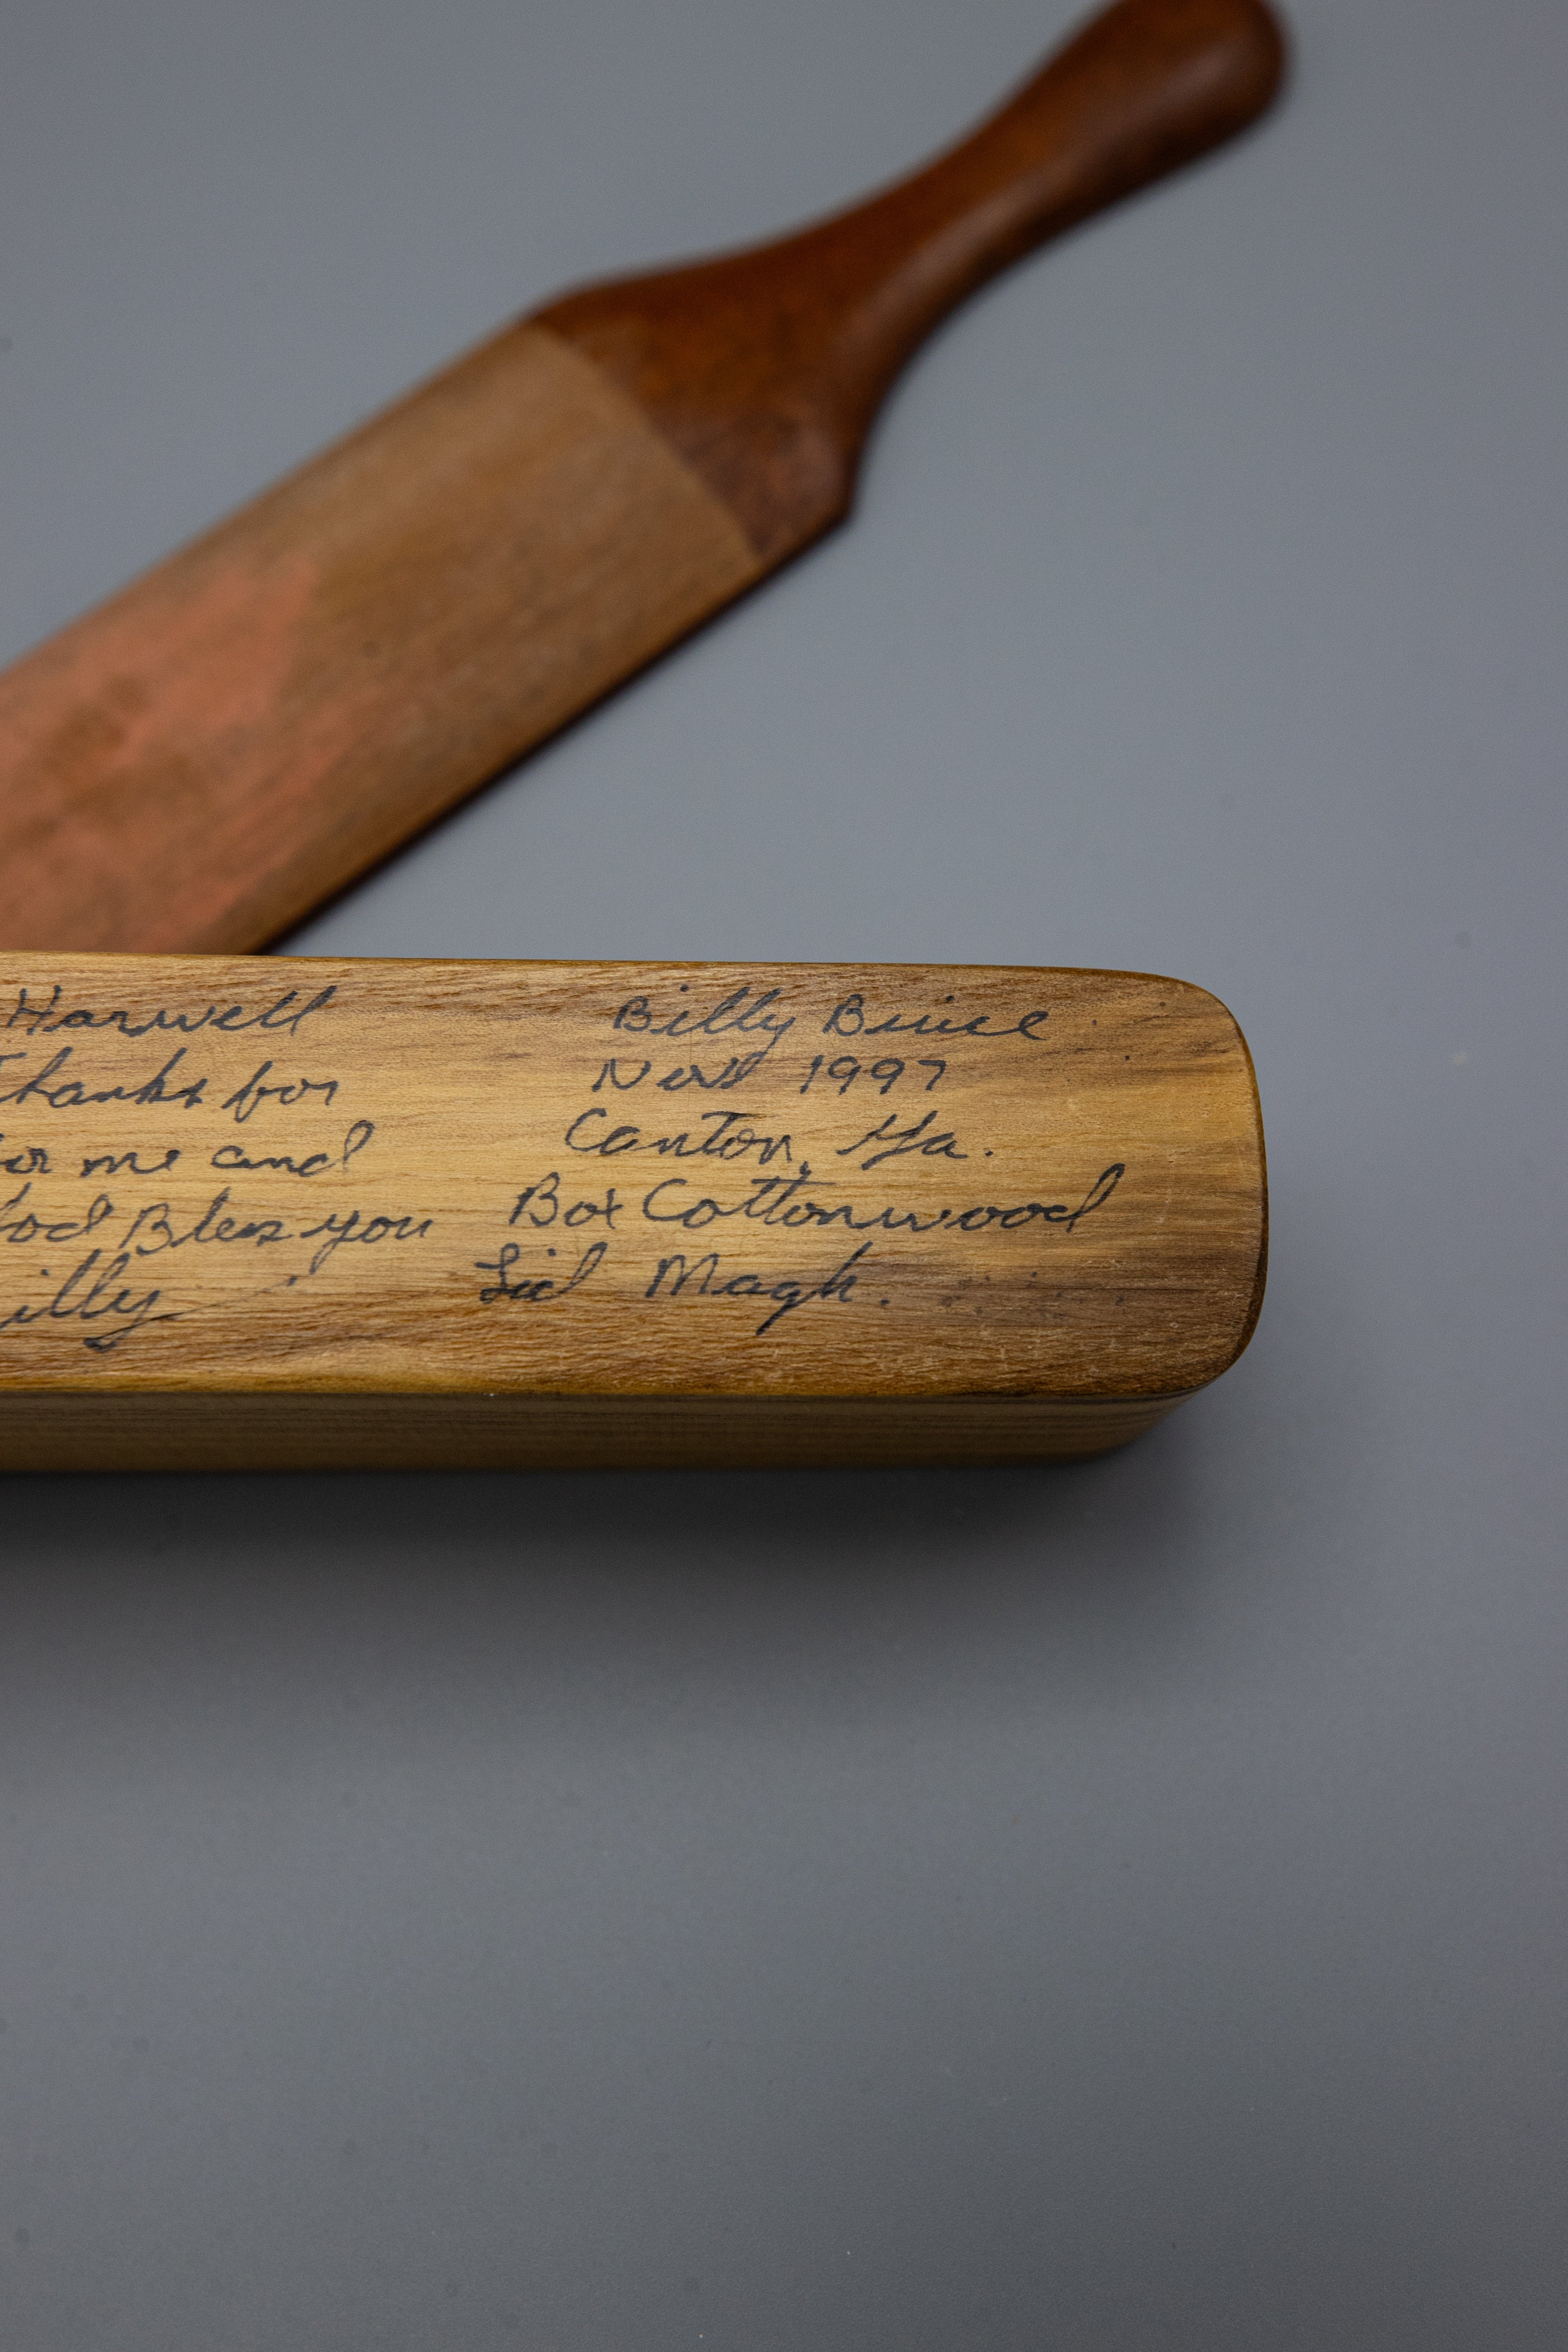 Harwell
Thanks for
me and
God Bless you
Billy
Billy Bruce
Nov 1997
Canton, Ga.
Box Cottonwood
Lid Magh.